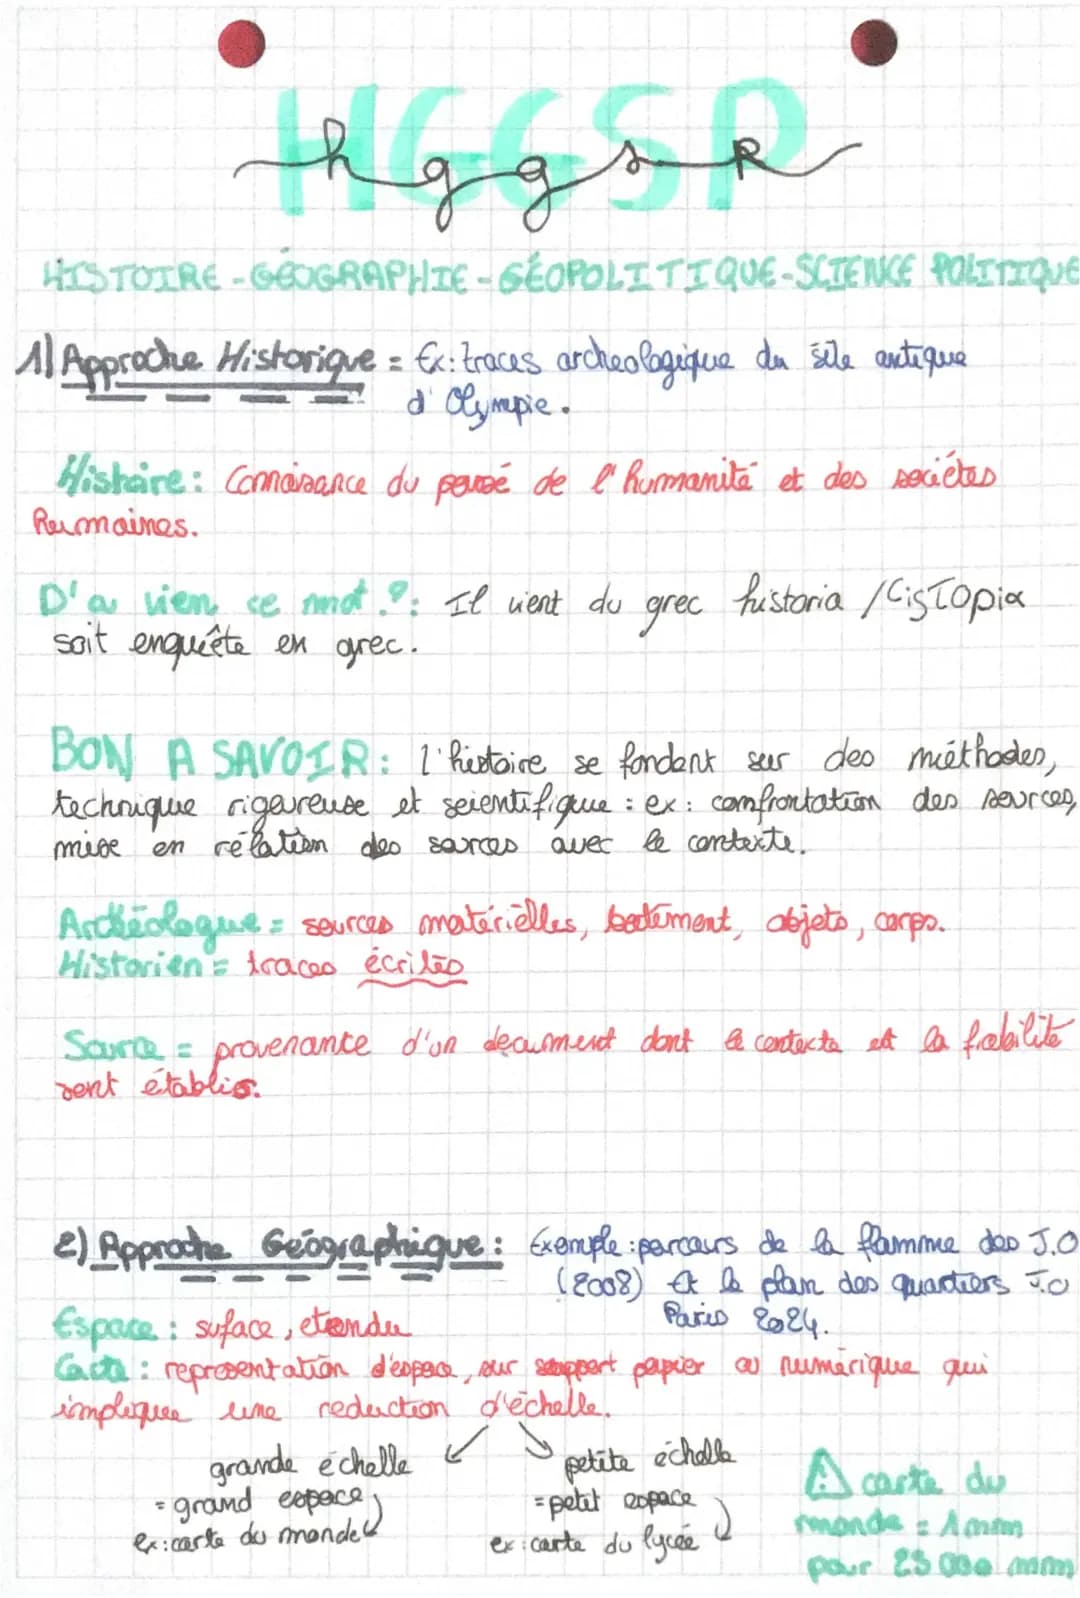 HGGSP
hggsp
HISTOIRE-GÉOGRAPHIE-GÉOPOLITIQUE-SCIENCE POLITIQUE
1) Approche Historique = Ex: traces archeologique du site antique
d'Olympie.
Histoire: Connaisance du passé de l'humanité et des sociétes
Humaines.
D'ou vien ce mot ?: Il vient du grec historia /ἱςτορία
soit enquête en grec.
BON A SAVOIR: l'histoire se fondent sur des méthodes,
technique rigoureuse et scientifique : ex: comfrontation des sources,
mise en rélation des sources avec le contexte.
Archéologue = sources matérielles, batement, objets, corps.
Historien = traces écrites
Source = provenance d'un document dont le contexte et la fiabilité
sont établis.
2) Approche Géographique : Exemple : parcours de la flamme des J.O
(2008) Et le plan des quartiers J.O
Paris 2024.
Espace : suface, etendu
Carte : representation d'espace, sur support papier ou numérique qui
implique une reduction d'échelle.
grande échelle petite échelle
= grand espace = petit espace
ex: carte du monde ex: carte du lycée
⚠ carte du
monde = 1mm
pour 25 000 mm